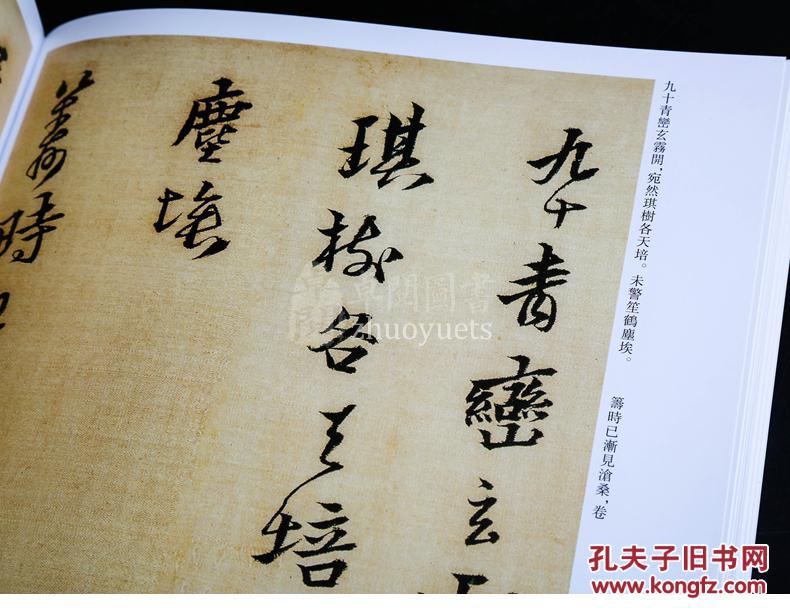 九十青巒玄霧開，宛然琪樹各天培。未警笙鶴塵埃。
籌時已漸見滄桑，卷
九十青巒玄
琪樹各天培
塵埃
籌時
卓閱圖書
zhuoyuets
孔夫子旧书网
www.kongfz.com